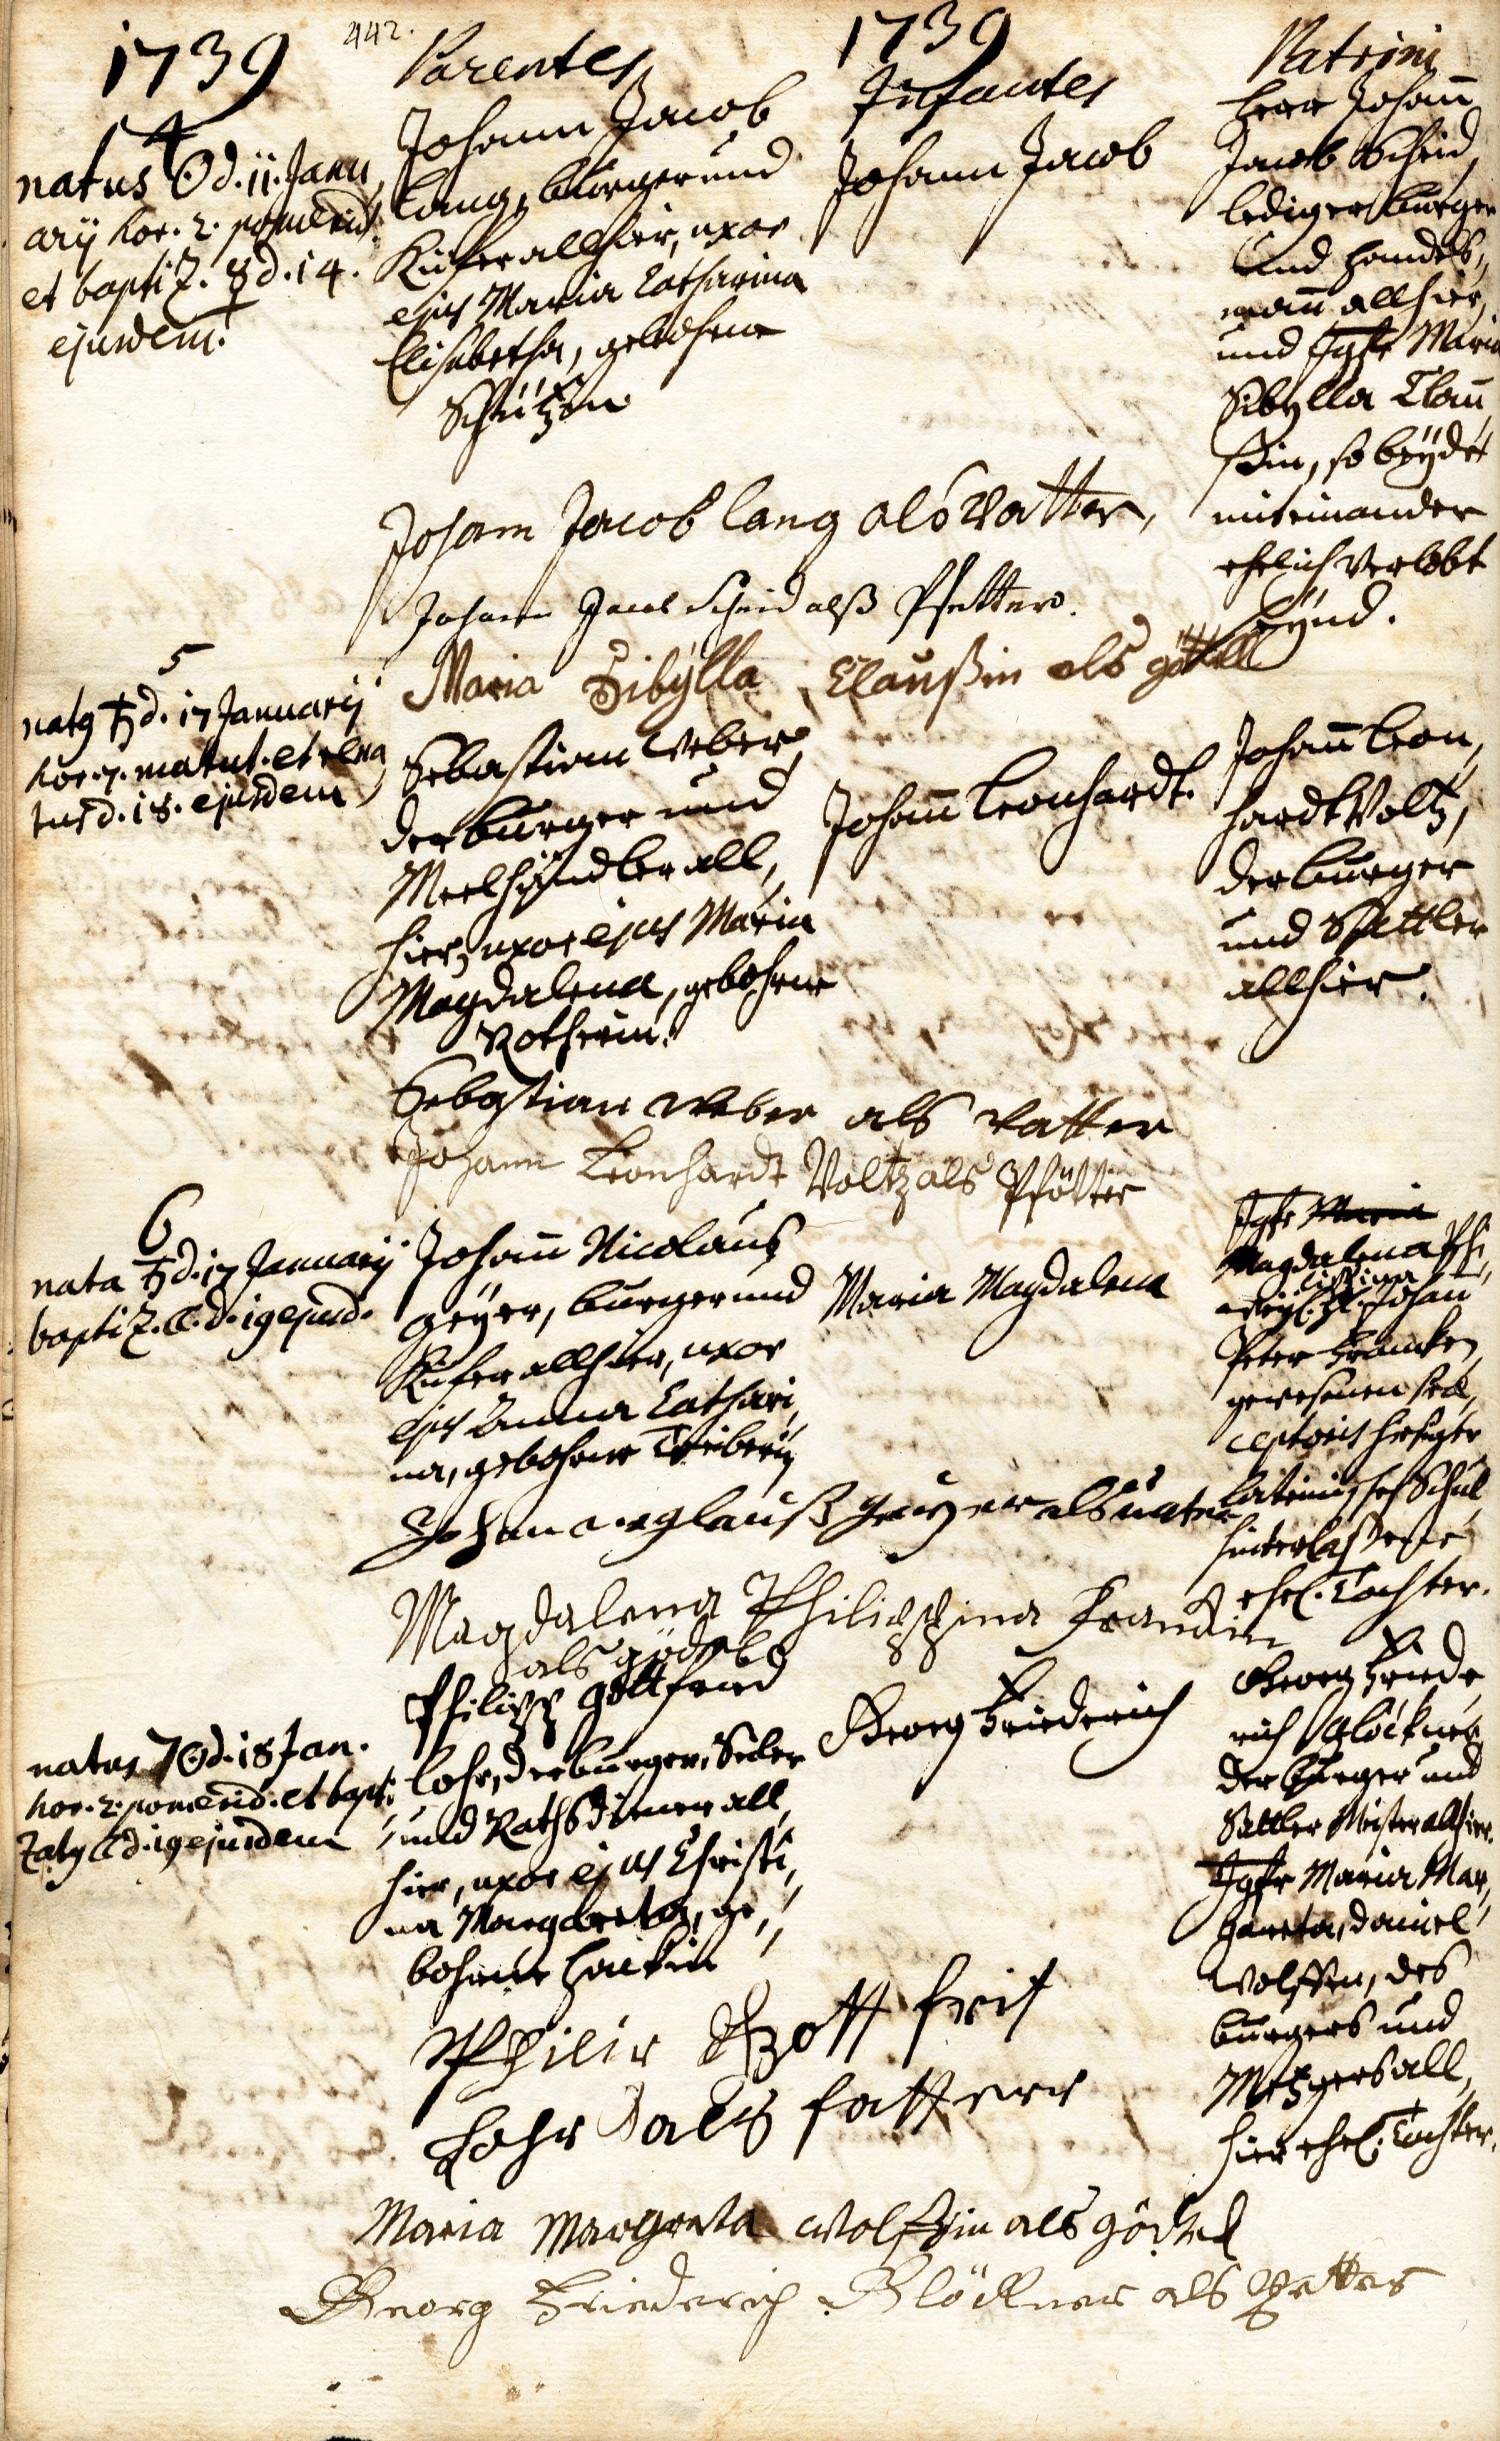 1739
442.
Parentes
1739
Infantes
Patrini
4
natus ☉ d. 11. Janu
arij hor. 2. pomerid.
et baptiz. ☿ d. 14.
ejusdem.
Johann Jacob
Lang, burger und
Küfer allhier, uxor
ejus Maria Catharina
Elisabetha, gebohrne
Schützin.
Johann Jacob
Herr Johañ
Jacob Scheid,
lediger burger
und handels,,
mañ allhier,
und Jgfr Maria
Sibylla Clau
ßin, so beyde
miteinander
ehelich verlobt
seynd.
Johann Jacob lang als Vatter,
Johann Jacob Scheid alß Pfetter.
Maria Sibÿlla Claußin als göttell
5
natg ♄ d. 17 Januarij
hor. 7. matut. et rena
tus d. 18. ejusdem
Sebastian Weber,
der burger und
Meelhändler all,
hier, uxor ejus Maria
Magdalena, gebohrne
Rotherin.
Johañ Leonhardt.
Johañ Leon,
hardt Voltz,
der burger
und Sattler
allhier.
Sebastian Weber als Vatter
Johann Leonhardt Voltz als Pfötter
6
nata ♄ d. 17 Januarij
baptiz. ☾. d. 19 ejusd.
Johañ Nicolaus
Geÿer, burger und
Küfer allhier, uxor
ejus Anna Cathari,
na, gebohrne
Maria Magdalena
Jgfr Maria
Magdalena Phi,
lippina
Johañ
Peter Francken,
gewesenen
hiesiger
Schul
hinterlaßene
ehel. Tochter.
Magdalena Philippina Franckin
als gödel
natus 7 ☉ d. 18 Jan.
hor. 2. pomerid. et bapti
zatg ☾ d. 19 ejusdem
Philipp Gottfried
Lohr, der burger, Seiler
und Rathsdiener all,
hier, uxor ejus Christi,
na Margareta, ge,,
bohrne
Georg Friederich
Georg Friede
rich Glöckner
der burger und
Sattler Meister allhier.
Jgfr Maria Mar,
gareta, Daniel
Wolffen, des
burgers und
Metzgers all,
hier ehel. Tochter.
Philip Gott frit
Lohr als fatterr
Maria Margreta Wolffin als gödel
Georg Friederich Glöckner als Petter